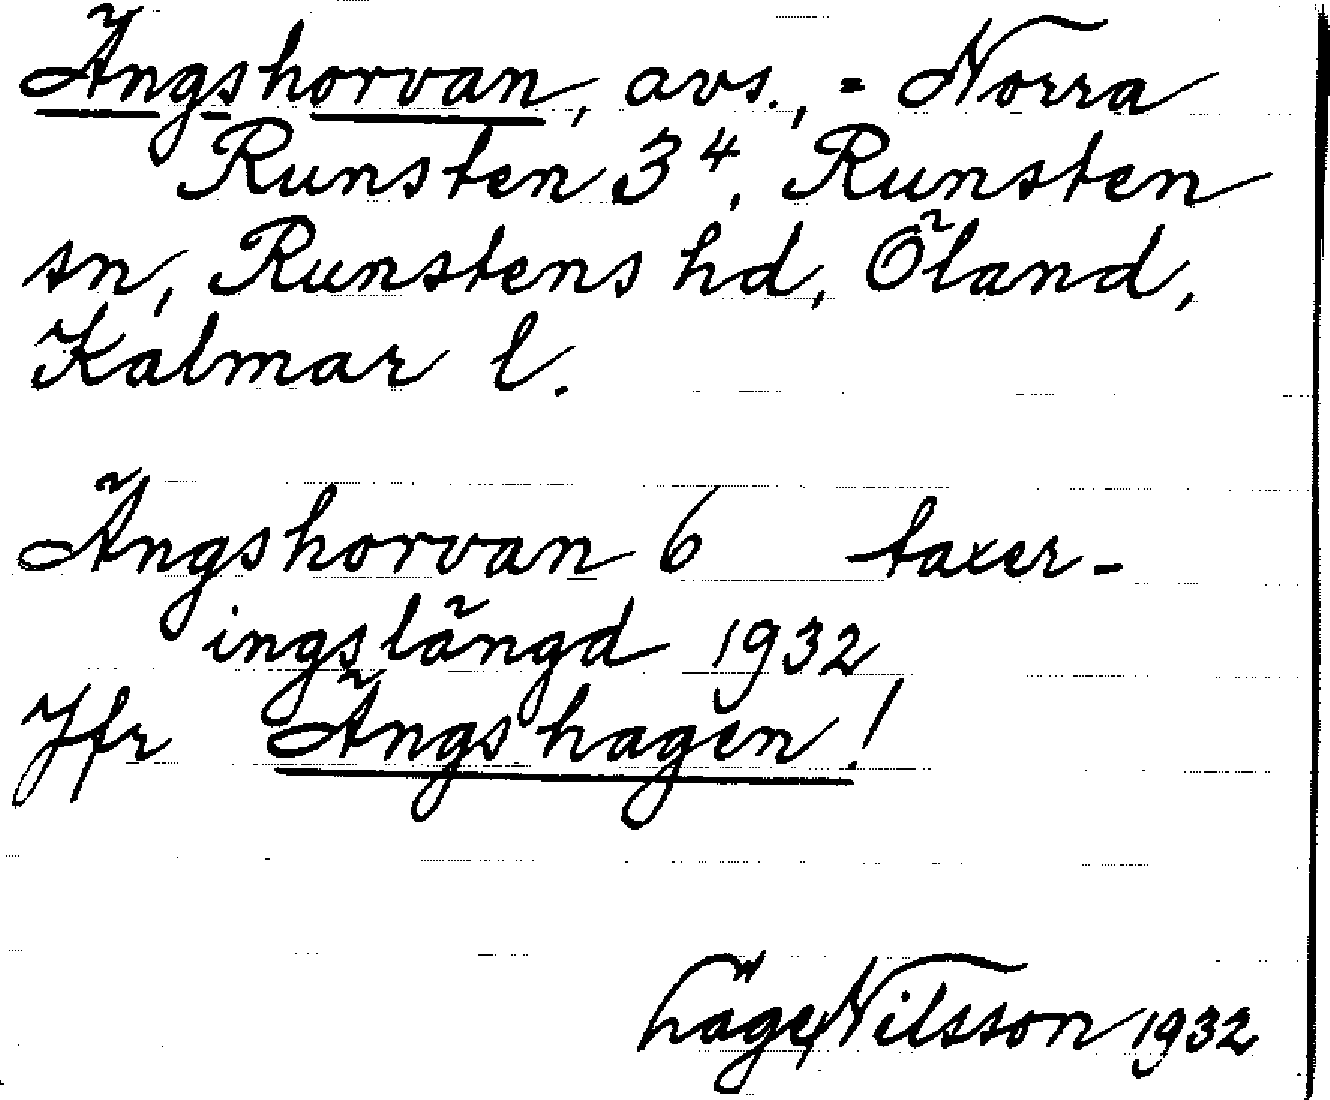 Ängshorvan, avs., = Norra
Runsten 3⁴, Runsten
sn, Runstens hd, Öland,
Kalmar l.
Ängshorvan 6 taxer-
ingslängd 1932
Jfr Ängshagen!
Häge Nilsson 1932